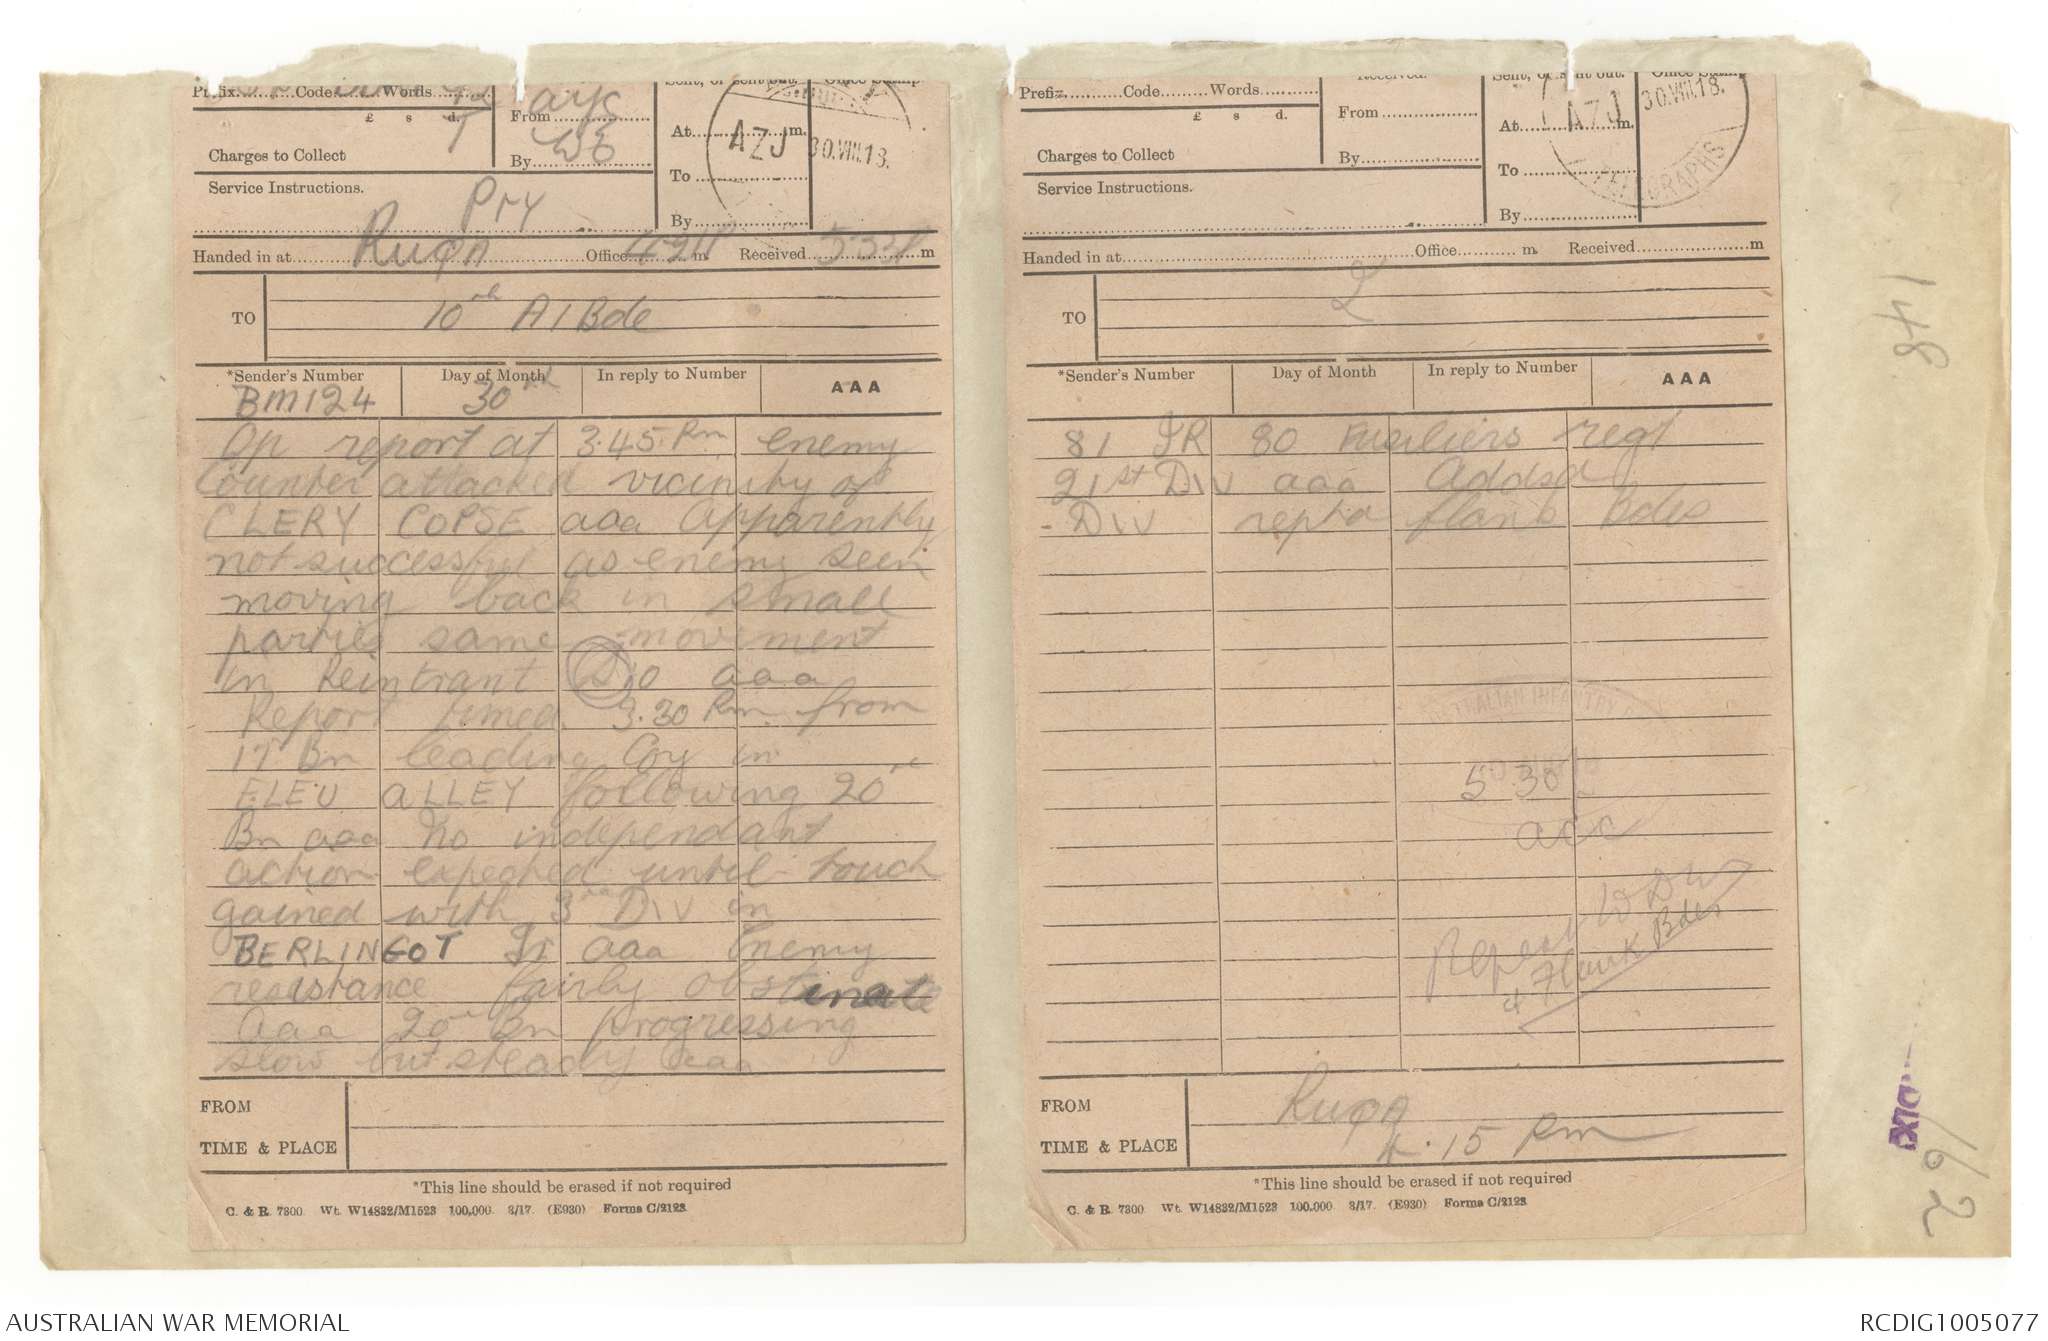 Prefix.............Code.........Words.........
£ s d.
Charges to Collect
Service Instructions.
Pry
From
By
WE
Sent, or sent out.
At................m.
To
By
AZJ
30.VIII.18.
Handed in at RUQA Office m. Received m
TO 10th AI Bde
*Sender's Number
BM124
Day of Month
30th
In reply to Number
AAA
Op report at 3.45 Pm enemy
counter attacked vicinity of
CLERY COPSE aaa apparently
not successful as enemy seen
moving back in small
parties same movement
in Reintrant aaa
Report timed 3.30 Pm from
17 Bn leading Coy in
ELEU ALLEY following 20th
Bn aaa No independant
action expected until touch
gained with 3rd Div in
BERLINGOT Tr aaa Enemy
resistance fairly obstinate
aaa 20th Bn progressing
slow but steady aaa
FROM
TIME & PLACE
*This line should be erased if not required
C. & R. 7300. Wt. W14832/M1523 100,000. 3/17. (E930) Forms C/2123
Prefix............Code.........Words...........
£ s d.
Charges to Collect
Service Instructions.
From
By
Received.
Sent, or sent out.
Office Stamp
At................m.
To
By
AZJ
30.VIII.18.
TELEGRAPHS
Handed in at Office m. Received m
TO 2
*Sender's Number
Day of Month
In reply to Number
AAA
81 IR 80 Fusiliers regt
21st Div aaa Addsd
- Div reptd flank Bdes
AUSTRALIAN INFANTRY
5 30
Repeat Div
& Flank Bdes
FROM RUQA
TIME & PLACE 4.15 Pm
*This line should be erased if not required
C. & R. 7300 Wt. W14832/M1523 100,000 3/17. (E930) Forms C/2123
148
162
AUSTRALIAN WAR MEMORIAL
RCDIG1005077